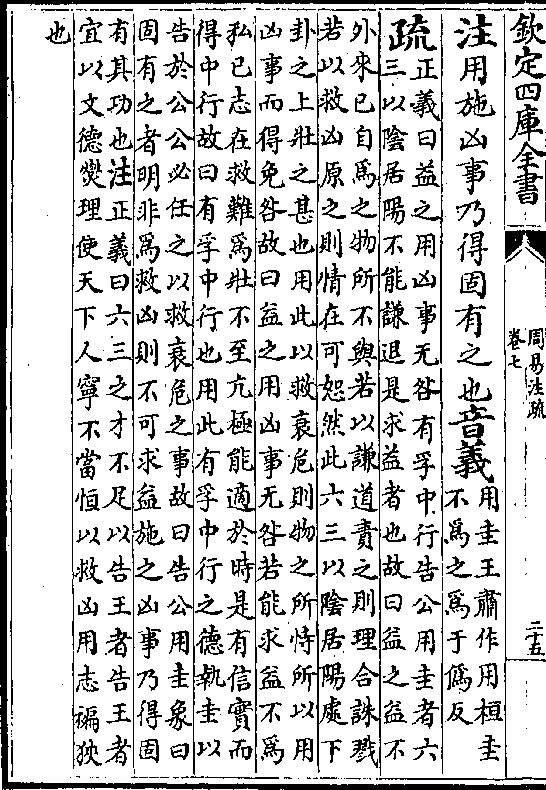 欽定四庫全書
周易注疏
卷七
二十五
注用施凶事乃得固有之也音義
用圭王肅作用桓圭
不為之為于偽反
疏
正義曰益之用凶事无咎有孚中行告公用圭者六
三以陰居陽不能謙退是求益者也故曰益之益不
外來己自為之物所不與若以謙道責之則理合誅戮
若以救凶原之則情在可恕然此六三以陰居陽處下
卦之上壯之甚也用此以救衰危則物之所恃所以用
凶事而得免咎故曰益之用凶事无咎若能求益不為
私己志在救難為壯不至亢極能適於時是有信實而
得中行故曰有孚中行也用此有孚中行之德執圭以
告於公公必任之以救衰危之事故曰告公用圭象曰
固有之者明非為救凶則不可求益施之凶事乃得固
有其功也注正義曰六三之才不足以告王者告王者
宜以文德爕理使天下人寧不當恒以救凶用志褊狹
也